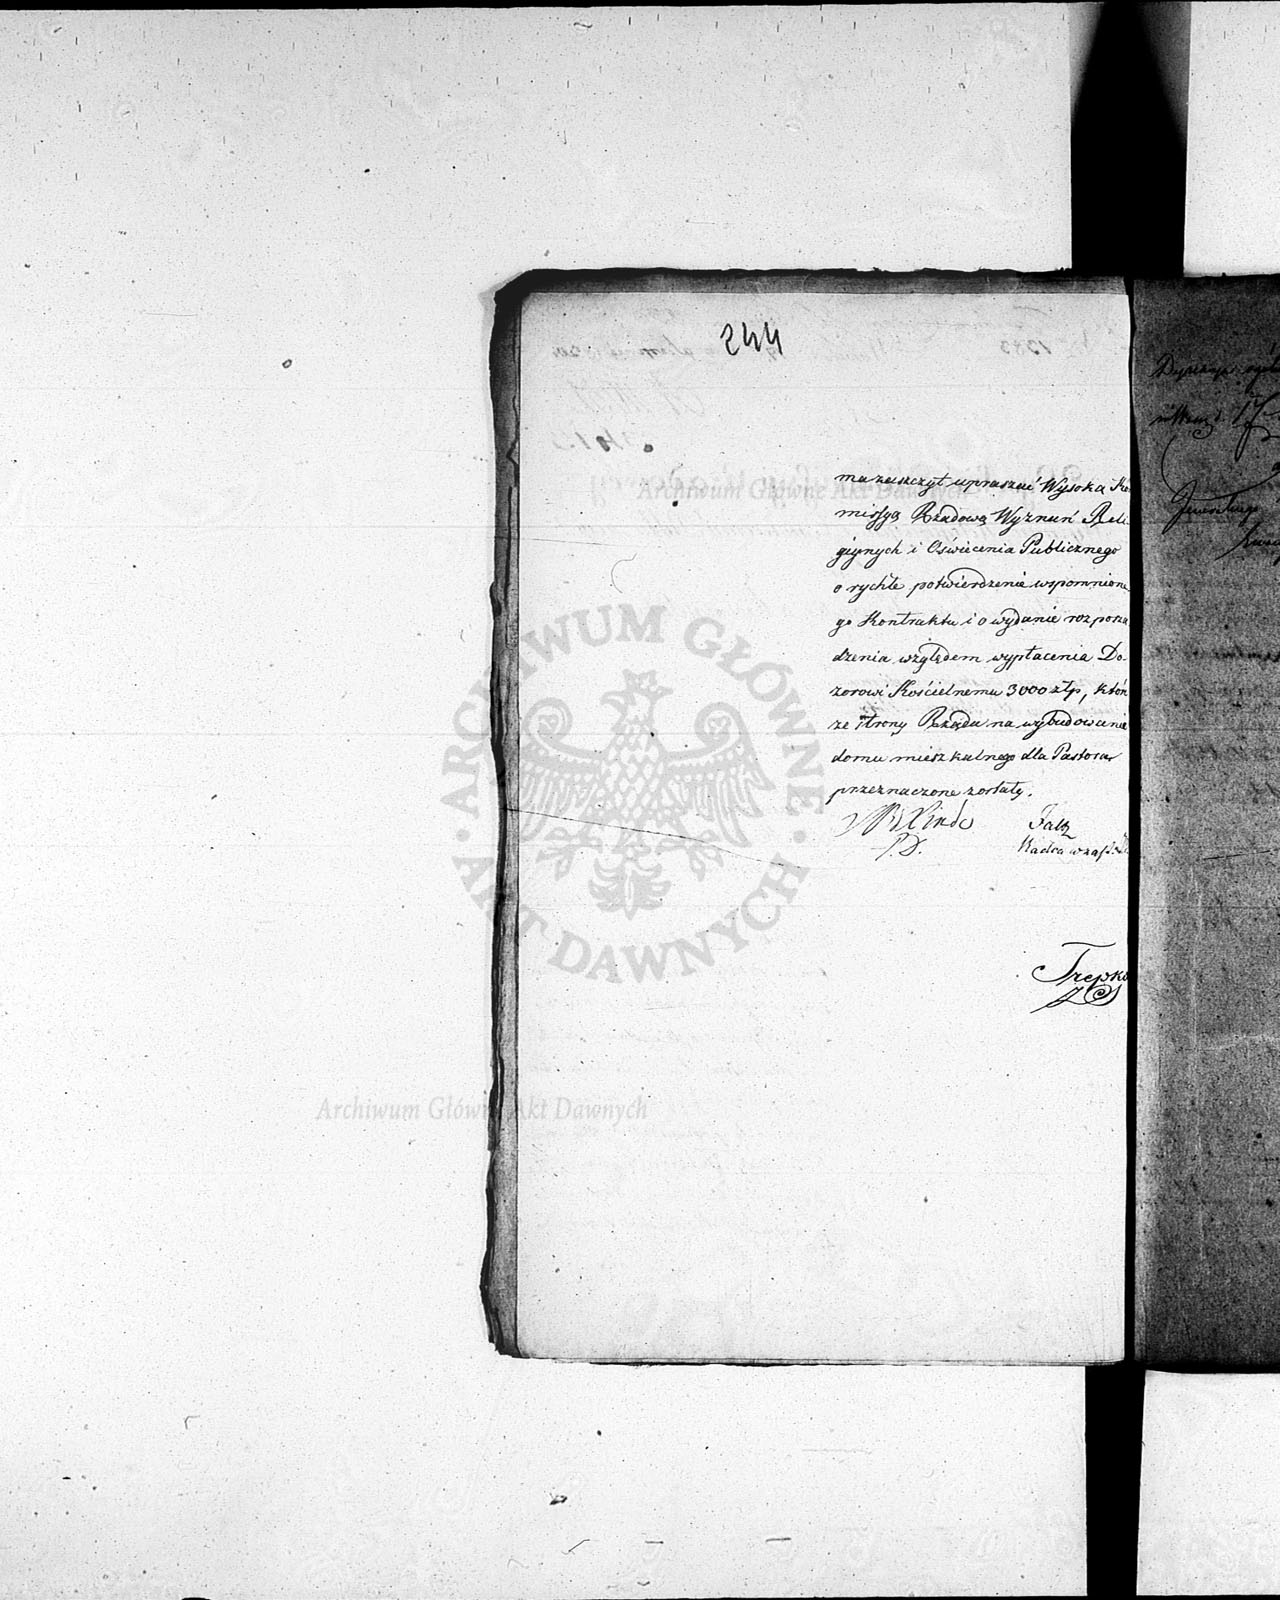 244
ma zaszczyt upraszać Wysoką Ko
missyą Rządową Wyznań Reli
giynych i Oświecenia Publicznego
o rychłe potwierdzenie wspomnione
go Kontraktu i o wydanie rozporzą
dzenia względem wypłacenia Do-
zorowi Kościelnemu 3000 złp, któr
ze strony Rządu na wybudowanie
domu mieszkalnego dla Pastora
przeznaczone zostały.
Falz
Radca
Trepka
ARCHIWUM GŁÓWNE AKT DAWNYCH
Archiwum Główne Akt Dawnych
Archiwum Główne Akt Dawnych